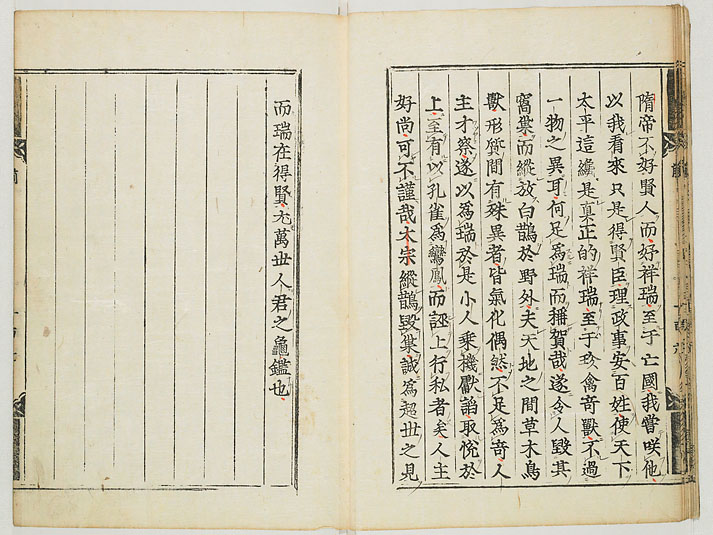 隋帝不好賢人而好祥瑞至于亡國我嘗咲他
以我看來只是得賢臣理政事安百姓使天下
太平這纔是真正的祥瑞至于珎禽竒獸不過
一物之異耳何足爲瑞而稱賀哉遂令人毀其
窩巢而縱放白鵲於野外夫天地之間草木鳥
獸形質間有殊異者皆氣化偶然不足爲竒人
主才察遂以爲瑞於是小人乗機獻謟取悅於
上至有以孔雀爲鸞鳳而誣上行私者矣人主
好尚可不謹哉太宗縱鵲毀巢誠爲超世之見
而瑞在得賢尤萬世人君之龜鑑也